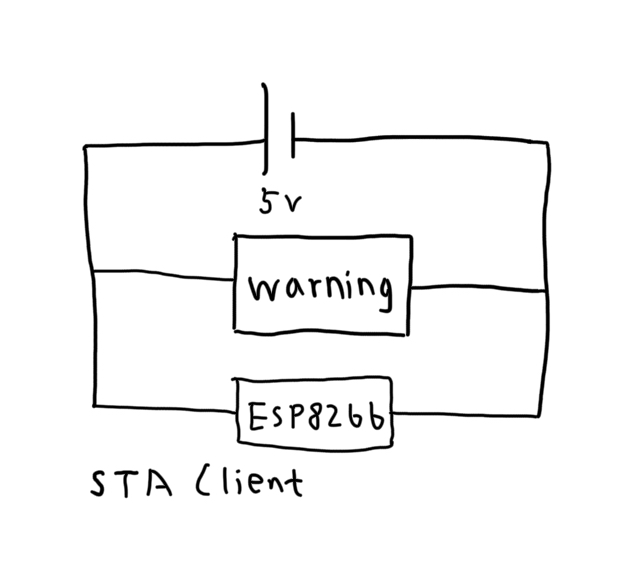 5v
warning
ESP8266
STA Client